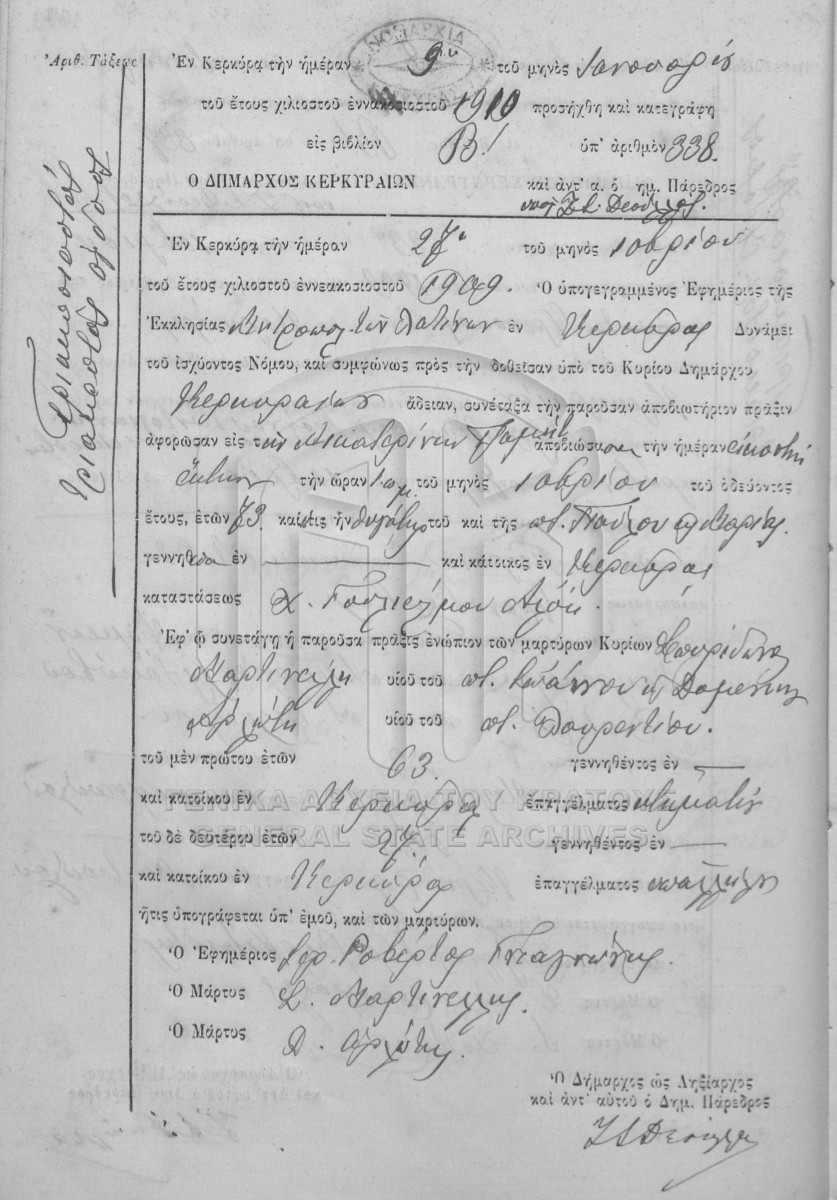 Ἀριθ. Τάξεως
Τριακοσιοστὸς
τριακοστὸς ὄγδοος
ΝΟΜΑΡΧΙΑ
Ἐν Κερκύρᾳ τὴν ἡμέραν 9ην τοῦ μηνὸς Ἰανουαρίου
τοῦ ἔτους χιλιοστοῦ ἐννακοσιοστοῦ 1910 προσήχθη καὶ κατεγράφη
εἰς βιβλίον Β! ὑπ' ἀριθμὸν 338.
Ο ΔΗΜΑΡΧΟΣ ΚΕΡΚΥΡΑΙΩΝ καὶ ἀντ' α. ὁ ημ. Πάρεδρος
Ἐν Κερκύρᾳ τὴν ἡμέραν 27 τοῦ μηνὸς 10βρίου
τοῦ ἔτους χιλιοστοῦ ἐννεακοσιοστοῦ 1909. Ὁ ὑπογεγραμμένος Ἐφημέριος τῆς
Ἐκκλησίας Μητροπολ. τῶν Λατίνων ἐν Κερκύρας Δυνάμει
τοῦ ἰσχύοντος Νόμου, καὶ συμφώνως πρὸς τὴν δοθεῖσαν ὑπὸ τοῦ Κυρίου Δημάρχου
Κερκυραίων ἄδειαν, συνέταξα τὴν παροῦσαν ἀποβιωτήριον πρᾶξιν
ἀφορῶσαν εἰς τὴν Αἰκατερίνην ἀποβιώσασαν τὴν ἡμέραν εἰκοστὴν
ἕκτην τὴν ὥραν 1 π.μ. τοῦ μηνὸς 10βρίου τοῦ ὁδεύοντος
ἔτους, ἐτῶν 73 καὶ ἥτις ἦν θυγάτηρ τοῦ καὶ τῆς ποτ. Παύλου κ Μαρίας.
γεννηθεῖσα ἐν — καὶ κάτοικος ἐν Κερκύρας
καταστάσεως χ. Γουλιέλμου
Ἐφ' ᾧ συνετάγη ἡ παροῦσα πρᾶξις ἐνώπιον τῶν μαρτύρων Κυρίων Σπυρίδωνα
Μαρτινέλλη υἱοῦ τοῦ ποτ. Ἰωάννου κ Δομένικο
υἱοῦ τοῦ ποτ. Λαυρεντίου.
τοῦ μὲν πρώτου ἐτῶν 63. γεννηθέντος ἐν —
καὶ κατοίκου ἐν Κερκύρᾳ ἐπαγγέλματος κτηματίου
τοῦ δὲ δευτέρου ἐτῶν 27. γεννηθέντος ἐν —
καὶ κατοίκου ἐν Κερκύρᾳ ἐπαγγέλματος ὑπαλλήλου
ἥτις ὑπογράφεται ὑπ' ἐμοῦ, καὶ τῶν μαρτύρων.
Ὁ Ἐφημέριος Ροβέρτος
Ὁ Μάρτυς Σ. Μαρτινέλλης.
Ὁ Μάρτυς Δ.
Ὁ Δήμαρχος ὡς Ληξίαρχος
καὶ ἀντ' αὐτοῦ ὁ Δημ. Πάρεδρος
ΓΕΝΙΚΑ ΑΡΧΕΙΑ ΤΟΥ ΚΡΑΤΟΥΣ
GENERAL STATE ARCHIVES